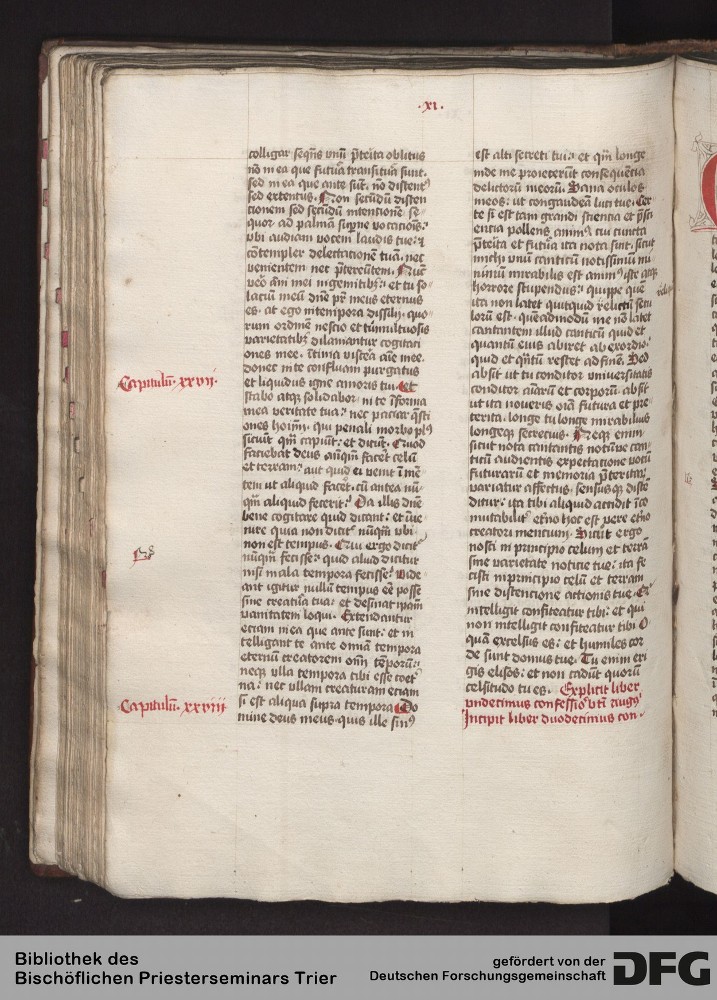 .xi.
colligar seqñs vnũ p̃terita oblitus
nõ in ea que futura transitura sunt.
sed in ea que ante sũt. nõ distent9
sed extentus. Non secũdũ disten
cionem sed secũdũ intentionẽ se-
quor ad palmã sup̃ne vocationis.
vbi audiam vocem laudis tue: et
cõtempler delectationẽ tuã. nec
venientem nec p̃tereũtem. Nũc
vẽo ãni mei in gemitib9: et tu so-
lacium meũ dñe pr̃ meus eternus
es. at ego in tempora dissilii. quo-
rum ordinẽ nescio et tumultuosis
varietatib9 dilaniantur cogitati
ones mee. ĩtima viscera aĩe mee.
donec in te confluam purgatus
et liquidus igne amoris tui. Et
Capitulũ. xxvii.
stabo atq3 solidabor in te ĩ forma
mea veritate tua: nec paciar q̃sti
ones hoim̃. qui penali morbo pl9
siciũt qm̃ capiũt: et dicũt. Quod
faciebat deus ãnq̃m facẽt celũ
et terram: aut quid ei venit ĩ mẽ-
tem ut aliquid facẽt. cũ antea nũ-
q̃m aliquid fecerit: Da illis dñe
bene cogitare quid dicant: et ĩue-
nire quia non dicit̃ nũq̃m vbi
non est tempus. Qui ergo dicit̃
nũq̃m fecisse: quid aliud dicitur
nisi in ala tempora fecisse: Vide-
ant igitur nullũ tempus eẽ posse
sine creatũa tua: et desinãt ipam̃
vanitatem loqui. Extendantur
eciam in ea que ante sunt: et in
telligant te ante omnia tempora
eternũ creatorem om̃ temporũ:
neq3 vlla tempora tibi esse coet̃
na: nec ullam creaturam eciam
si est aliqua supra tempora. Do
Capitulũ. xxviii
mine deus meus. quis ille sin9
est alti secreti tui: et qm̃ longe
inde me proiecerũt consequẽcia
delictorũ meorũ. Sana oculos
meos: ut congaudeã luci tue. Cer
te si est tam grandi sciencia et p̃sci
encia pollens anim9 cui cuncta
p̃terita et futura ita nota sint. sicut
michi vnũ canticũ notissimũ ni
miũ mirabilis est anim9 iste atq3
horrore stupendus: quippe quẽ
ita non latet quitquid relictũ secu
lorũ est. quẽadmodũ me nõ latet
cantantem illud canticũ quid et
quantũ eius abiret ab exordio.
quid et q̃ntũ restet ad finẽ. Sed
absit ut tu conditor vniuersitatis
conditor aĩarũ et corporũ. absit
ut ita noveris oĩa futura et pre-
terita. longe tu longe mirabilius
longeq3 secrecius. Neq3 enim
sicut nota cantantis notũve can-
ticũ audientis expectatione vocũ
futurarũ et memoria p̃teritar9
variatur affectus. sensusq3 diste
ditur: ita tibi aliquid accidit ĩcõ
mutabilit̃ etno hoc est vere etno
creatori mentium. Sicut ergo
nosti in principio celum et terrã
sine varietate noticie tue: ita fe
cisti in principio celũ et terram
sine distencione actionis tue. Qui
intelligit confiteatur tibi: et qui
non intelligit confiteatur tibi. O
quã excelsus es: et humiles cor
de sunt domus tue. Tu enim eri
gis elisos: et non cadũt quorũ
celsitudo tu es. Explicit liber
vndecimus confessio9 bti augus
Incipit liber duodecimus con.
Bibliothek des
Bischöflichen Priesterseminars Trier
gefördert von der
Deutschen Forschungsgemeinschaft
DFG